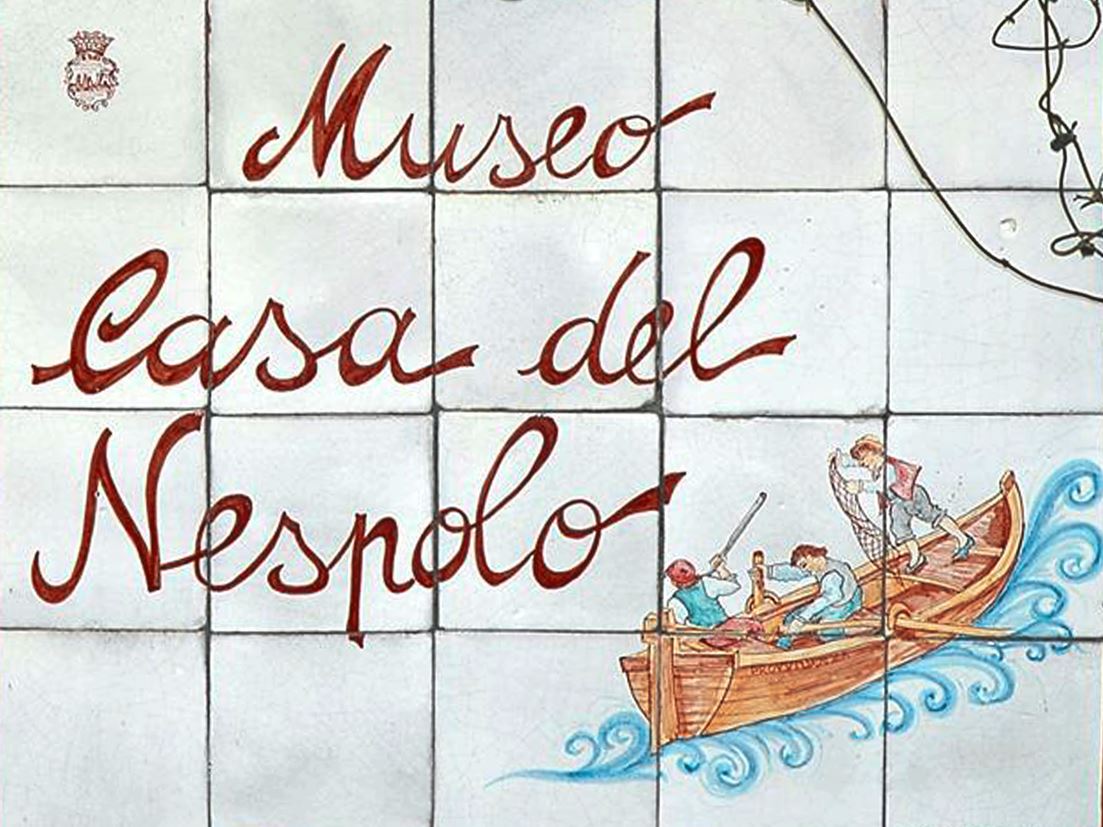 Museo
Casa del
Nespolo